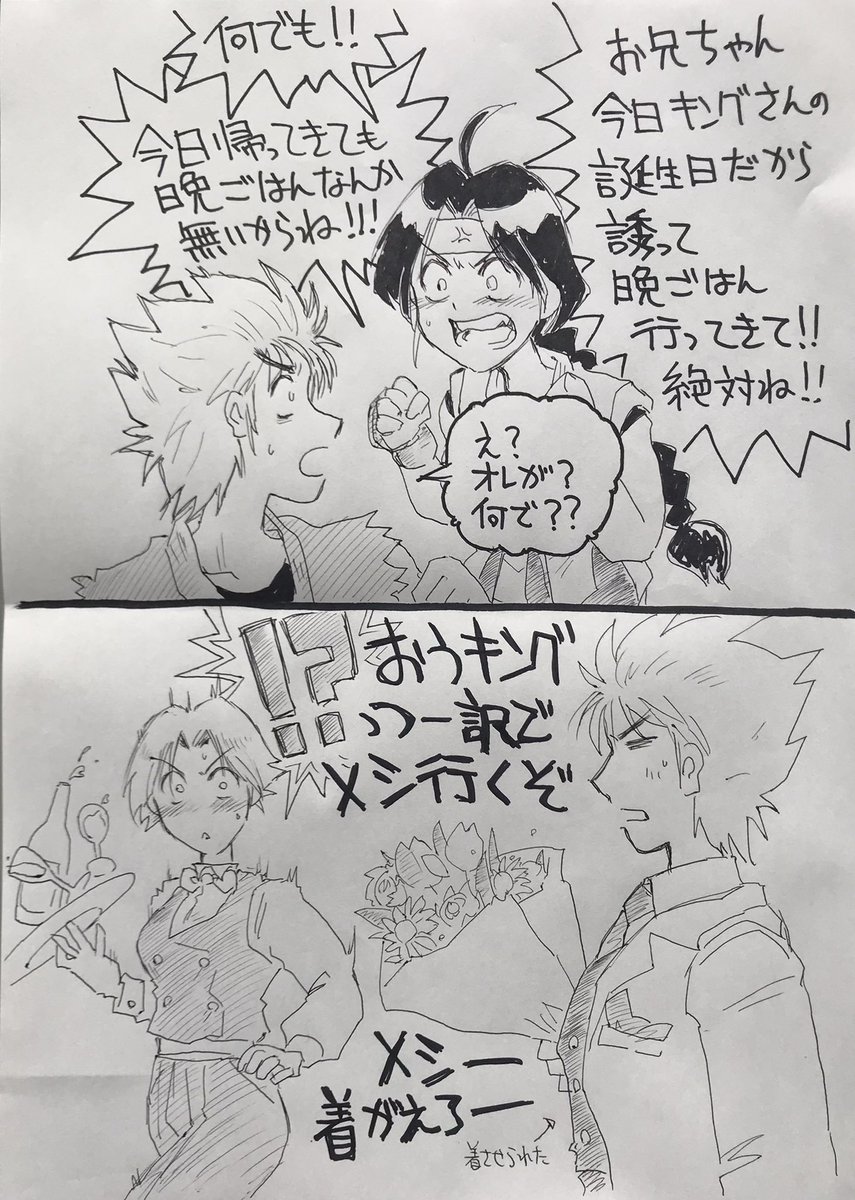 お兄ちゃん
今日キングさんの
誕生日だから
誘って
晩ごはん
行ってきて!!
絶対ね!!
え?
オレが?
何で??
何でも!!
今日帰ってきても
晩ごはんなんか
無いからね!!!
おうキング
っつー訳で
メシ行くぞ
!?
メシー
着がえろー
着させられた